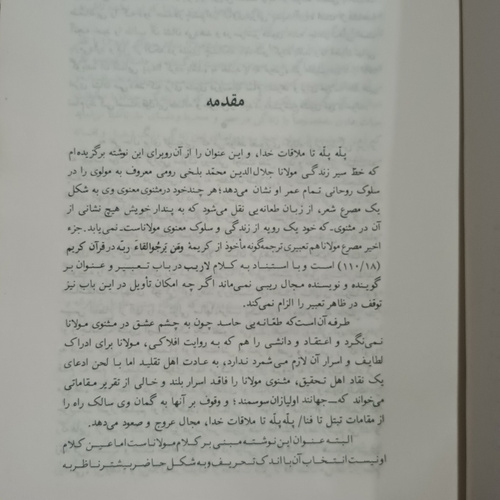 مقدمه
پلّه پلّه تا ملاقات خدا، و این عنوان را از آن رو برای این نوشته برگزیده‌ام
که خط سیر زندگی مولانا جلال‌الدین محمّد بلخی رومی معروف به مولوی را در
سلوک روحانی تمام عمر او نشان می‌دهد؛ هر چند خود در مثنوی معنوی وی به شکل
یک مصرع شعر، از زبان طعانه‌یی نقل می‌شود که به پندار خویش هیچ نشانی از
آن در مثنوی‌ـ که خود یک رویه از زندگی و سلوک معنوی مولاناست‌ـ نمی‌یابد. جزء
اخیر مصرع مولانا هم تعبیری ترجمه‌گونه مأخوذ از کریمهٔ وَمَن یَرجُوالِقاءَ رَبِّه در قرآن کریم
(۱۱۰/۱۸) است و با استناد به کلام لاریب در باب تعبیر و عنوان بر
گوینده و نویسنده مجال ریبی نمی‌ماند اگر چه امکان تأویل در این باب نیز
توقف در ظاهر تعبیر را الزام نمی‌کند.
طرفه آن است که طعّانه‌یی حاسد چون به چشم عشق در مثنوی مولانا
نمی‌نگرد و اعتقاد و دانشی را هم که به روایت افلاکی، مولانا برای ادراک
لطایف و اسرار آن لازم می‌شمرد ندارد، به عادت اهل تقلید اما با لحن ادعای
یک نقاد اهل تحقیق، مثنوی مولانا را فاقد اسرار بلند و خالی از تقریر مقاماتی
می‌خواند که‌ـ جهانند اولیازان سوسمند؛ و وقوف بر آنها به گمان وی سالک راه را
از مقامات تبتل تا فنا/ پلّه پلّه تا ملاقات خدا، مجال عروج و صعود می‌دهد.
البته عنوان این نوشته مبنی بر کلام مولاناست اما عین کلام
او نیست انتخاب آن با اندک تحریف و به شکل حاضر بیشتر ناظر به